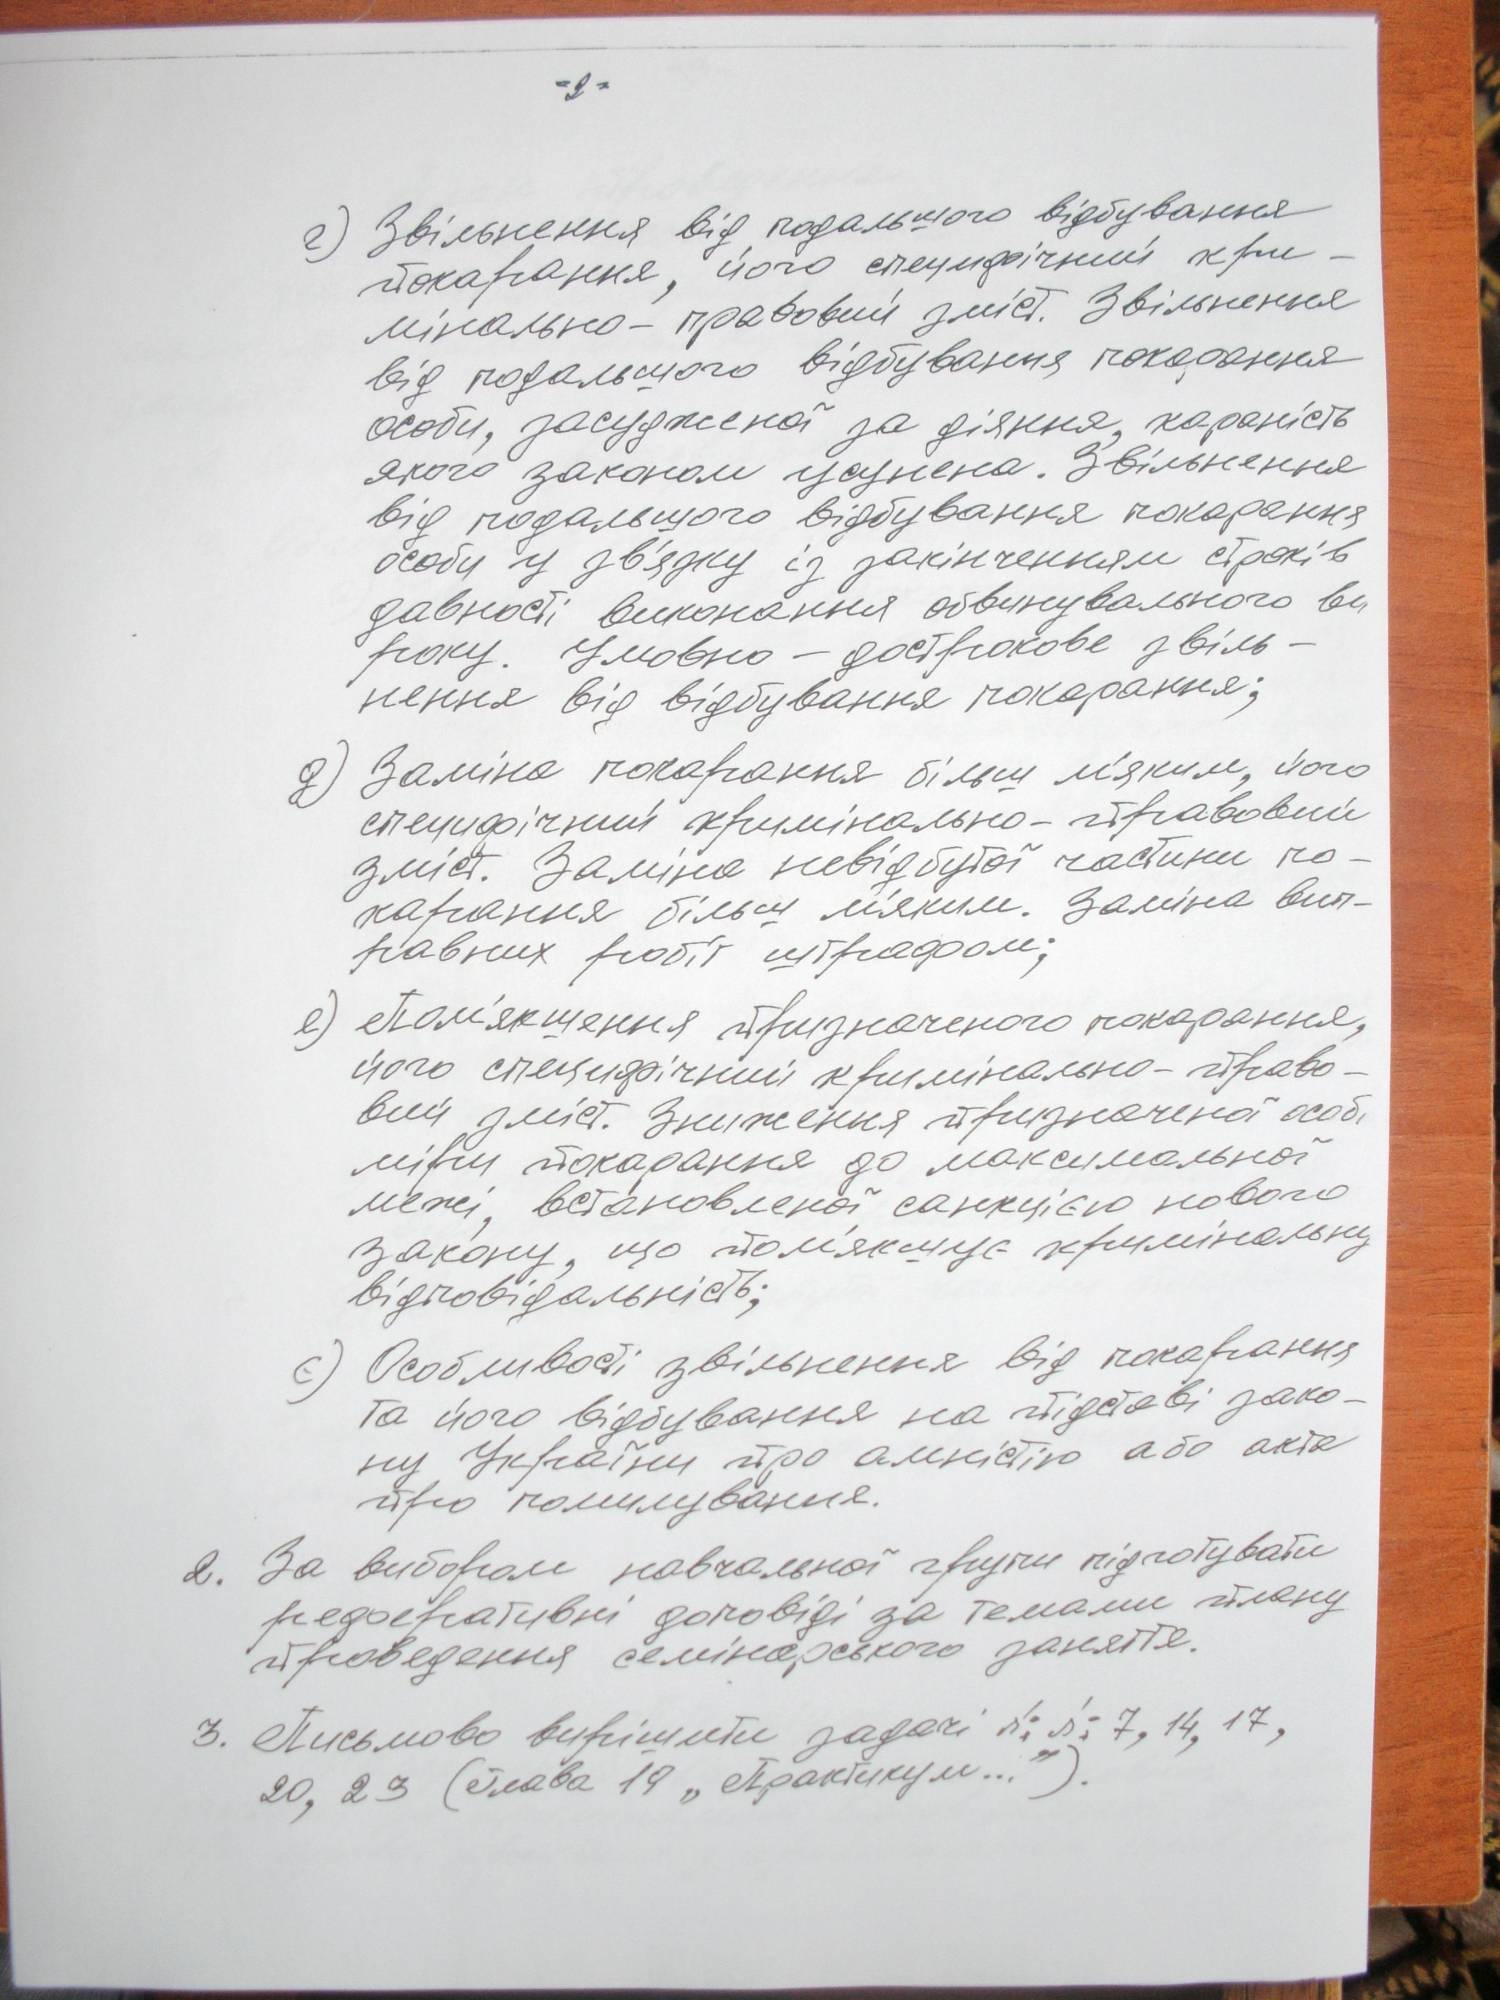 -2-
г) Звільнення від подальшого відбування
покарання, його специфічний кри-
мінально-правовий зміст. Звільнення
від подальшого відбування покарання
особи, засудженої за діяння, караність
якого законом усунена. Звільнення
від подальшого відбування покарання
особи у зв'язку із закінченням строків
давності виконання обвинувального ви
року. Умовно-дострокове звіль-
нення від відбування покарання;
д) Заміна покарання більш м'яким, його
специфічний кримінально-правовий
зміст. Заміна невідбутої частини по-
карання більш м'яким. Заміна вип-
равних робіт штрафом;
е) Пом'якшення призначеного покарання,
його специфічний кримінально-право-
вий зміст. Зниження призначеної особі
міри покарання до максимальної
межі, встановленої санкцією нового
закону, що пом'якшує кримінальну
відповідальність;
є) Особливості звільнення від покарання
та його відбування на підставі зако-
ну України про амністію або акта
про помилування.
2. За вибором навчальної групи підготувати
реферативні доповіді за темами плану
проведення семінарського заняття.
3. Письмово вирішити задачі №№ 7, 14, 17,
20, 23 (глава 19 „Практикум...").